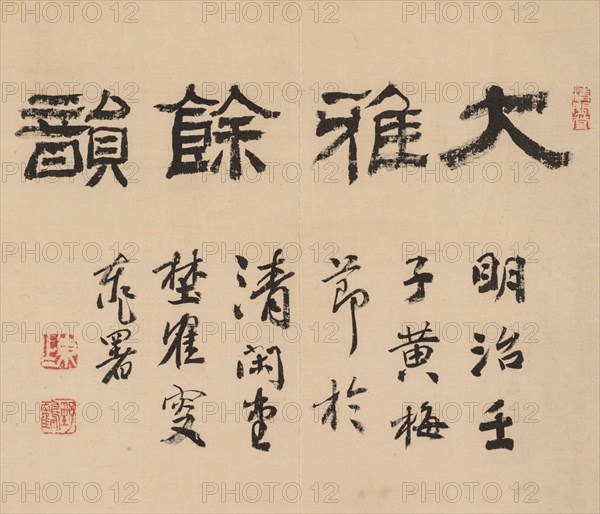 大雅餘韻
明治壬
子黄梅
節於
清閑堂
埜寉叟
署
PHOTO12